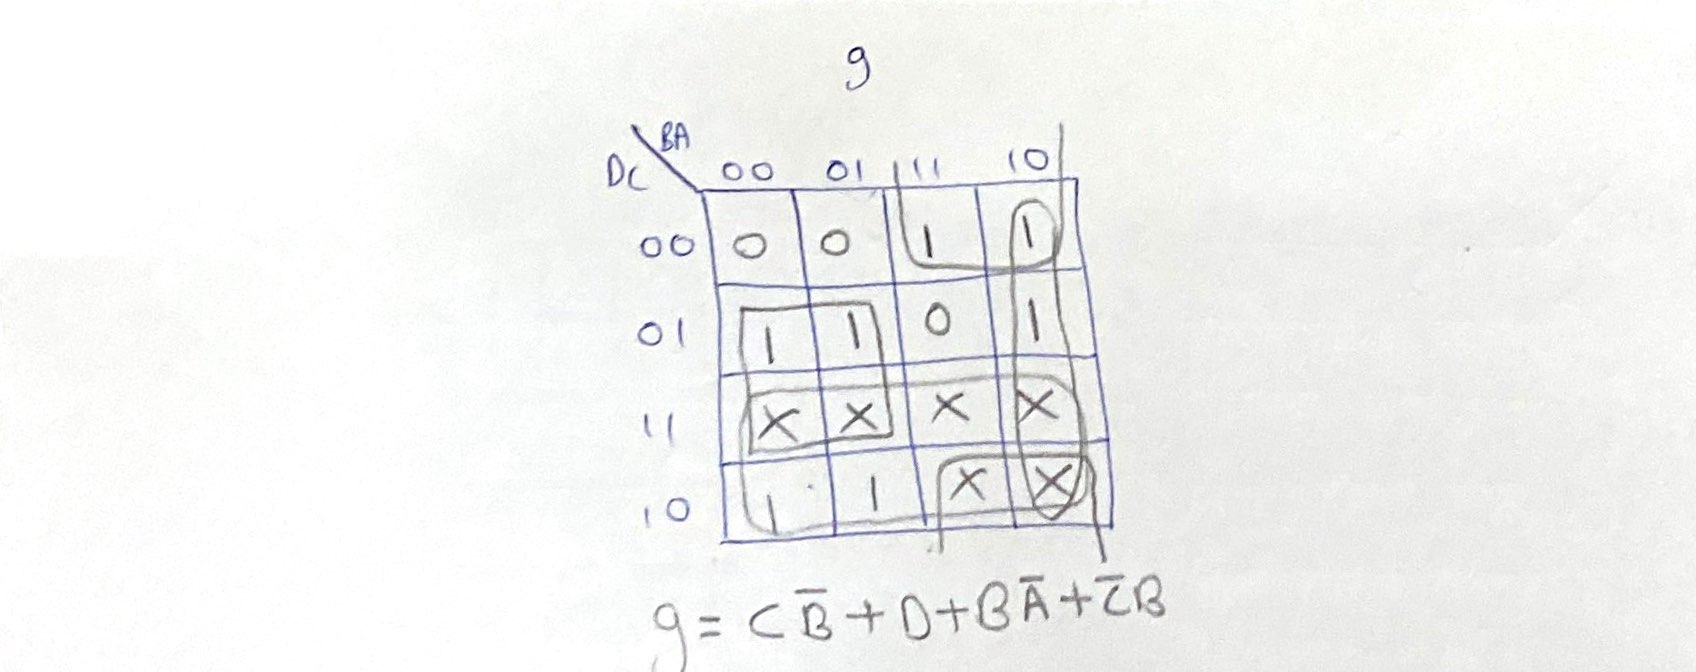 g
BA
DC 00 01 11 10
00 0 0 1 1
01 1 1 0 1
11 X X X X
10 1 1 X X
g = CB̅ + D + BA̅ + C̅B